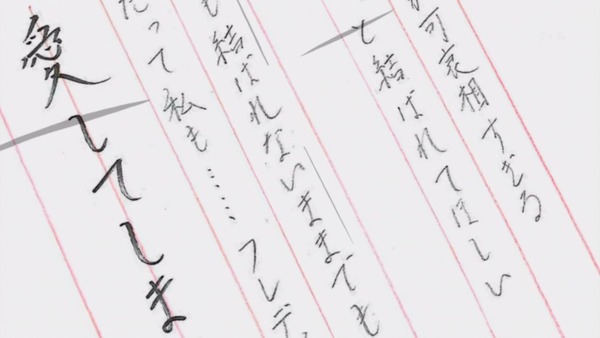 可哀相すぎる
と結ばれてほしい
も結ばれないままでも
だって私も……フレデ
愛してしま